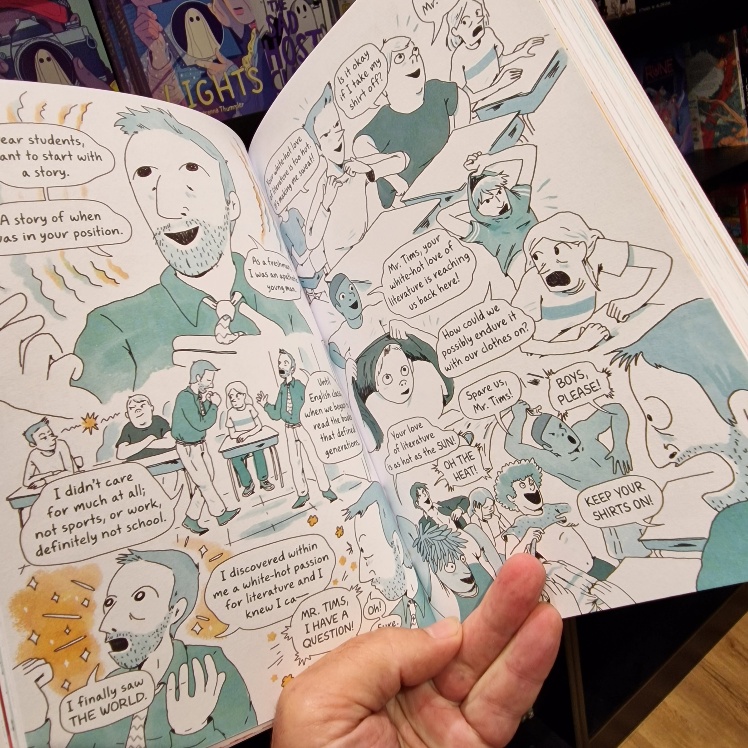 THE
LIGHTS
ear students,
ant to start with
a story.
A story of when
was in your position.
As a freshman
I was an
young man
Until
English class
when we began
read the books
that defined
generations
I didn't care
for much at all;
not sports, or work,
definitely not school.
I discovered within
me a white-hot passion
for literature and I
knew I ca—
MR. TIMS,
I HAVE A
QUESTION!
Oh!
Sure.
I finally saw
THE WORLD.
Mr.
Is it okay
if I take my
shirt off?
white-hot love
literature is too hot.
It's making me sweat!
Mr. Tims, your
white-hot love of
literature is reaching
us back here!
How could we
possibly endure it
with our clothes on?
Spare us,
Mr. Tims!
BOYS,
PLEASE!
Your love
of literature
is as hot as the SUN!
OH THE
HEAT!
KEEP YOUR
SHIRTS ON!